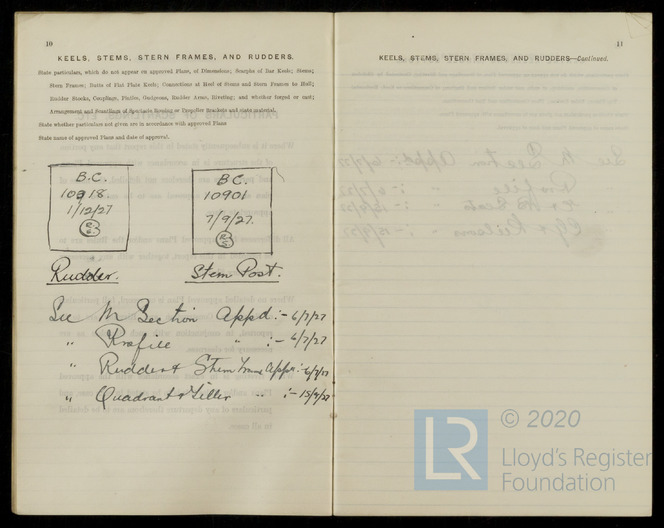 10
KEELS, STEMS, STERN FRAMES, AND RUDDERS.
State particulars, which do not appear on approved Plans, of Dimensions; Scarphs of Bar Keels; Stems;
Stern Frames; Butts of Flat Plate Keels; Connections at Heel of Stems and Stern Frames to Hull;
Rudder Stocks, Couplings, Pintles, Gudgeons, Rudder Arms, Riveting; and whether forged or cast;
Arrangement and Scantlings of Spectacle Bossing or Propeller Brackets and state material.
State whether particulars not given are in accordance with approved Plans
State name of approved Plans and date of approval.
B.C.
10918
1/12/27
Rudder.
B.C.
10901
7/9/27.
Stern Post.
See M Section Appd :- 6/7/27
" Profile " :- 6/7/27
" Rudder & Stern Frame Appd :-
" Quadrant & Tiller " :- 15/9/27
11
KEELS, STEMS, STERN FRAMES, AND RUDDERS—Continued.
© 2020
LR
Lloyd's Register
Foundation